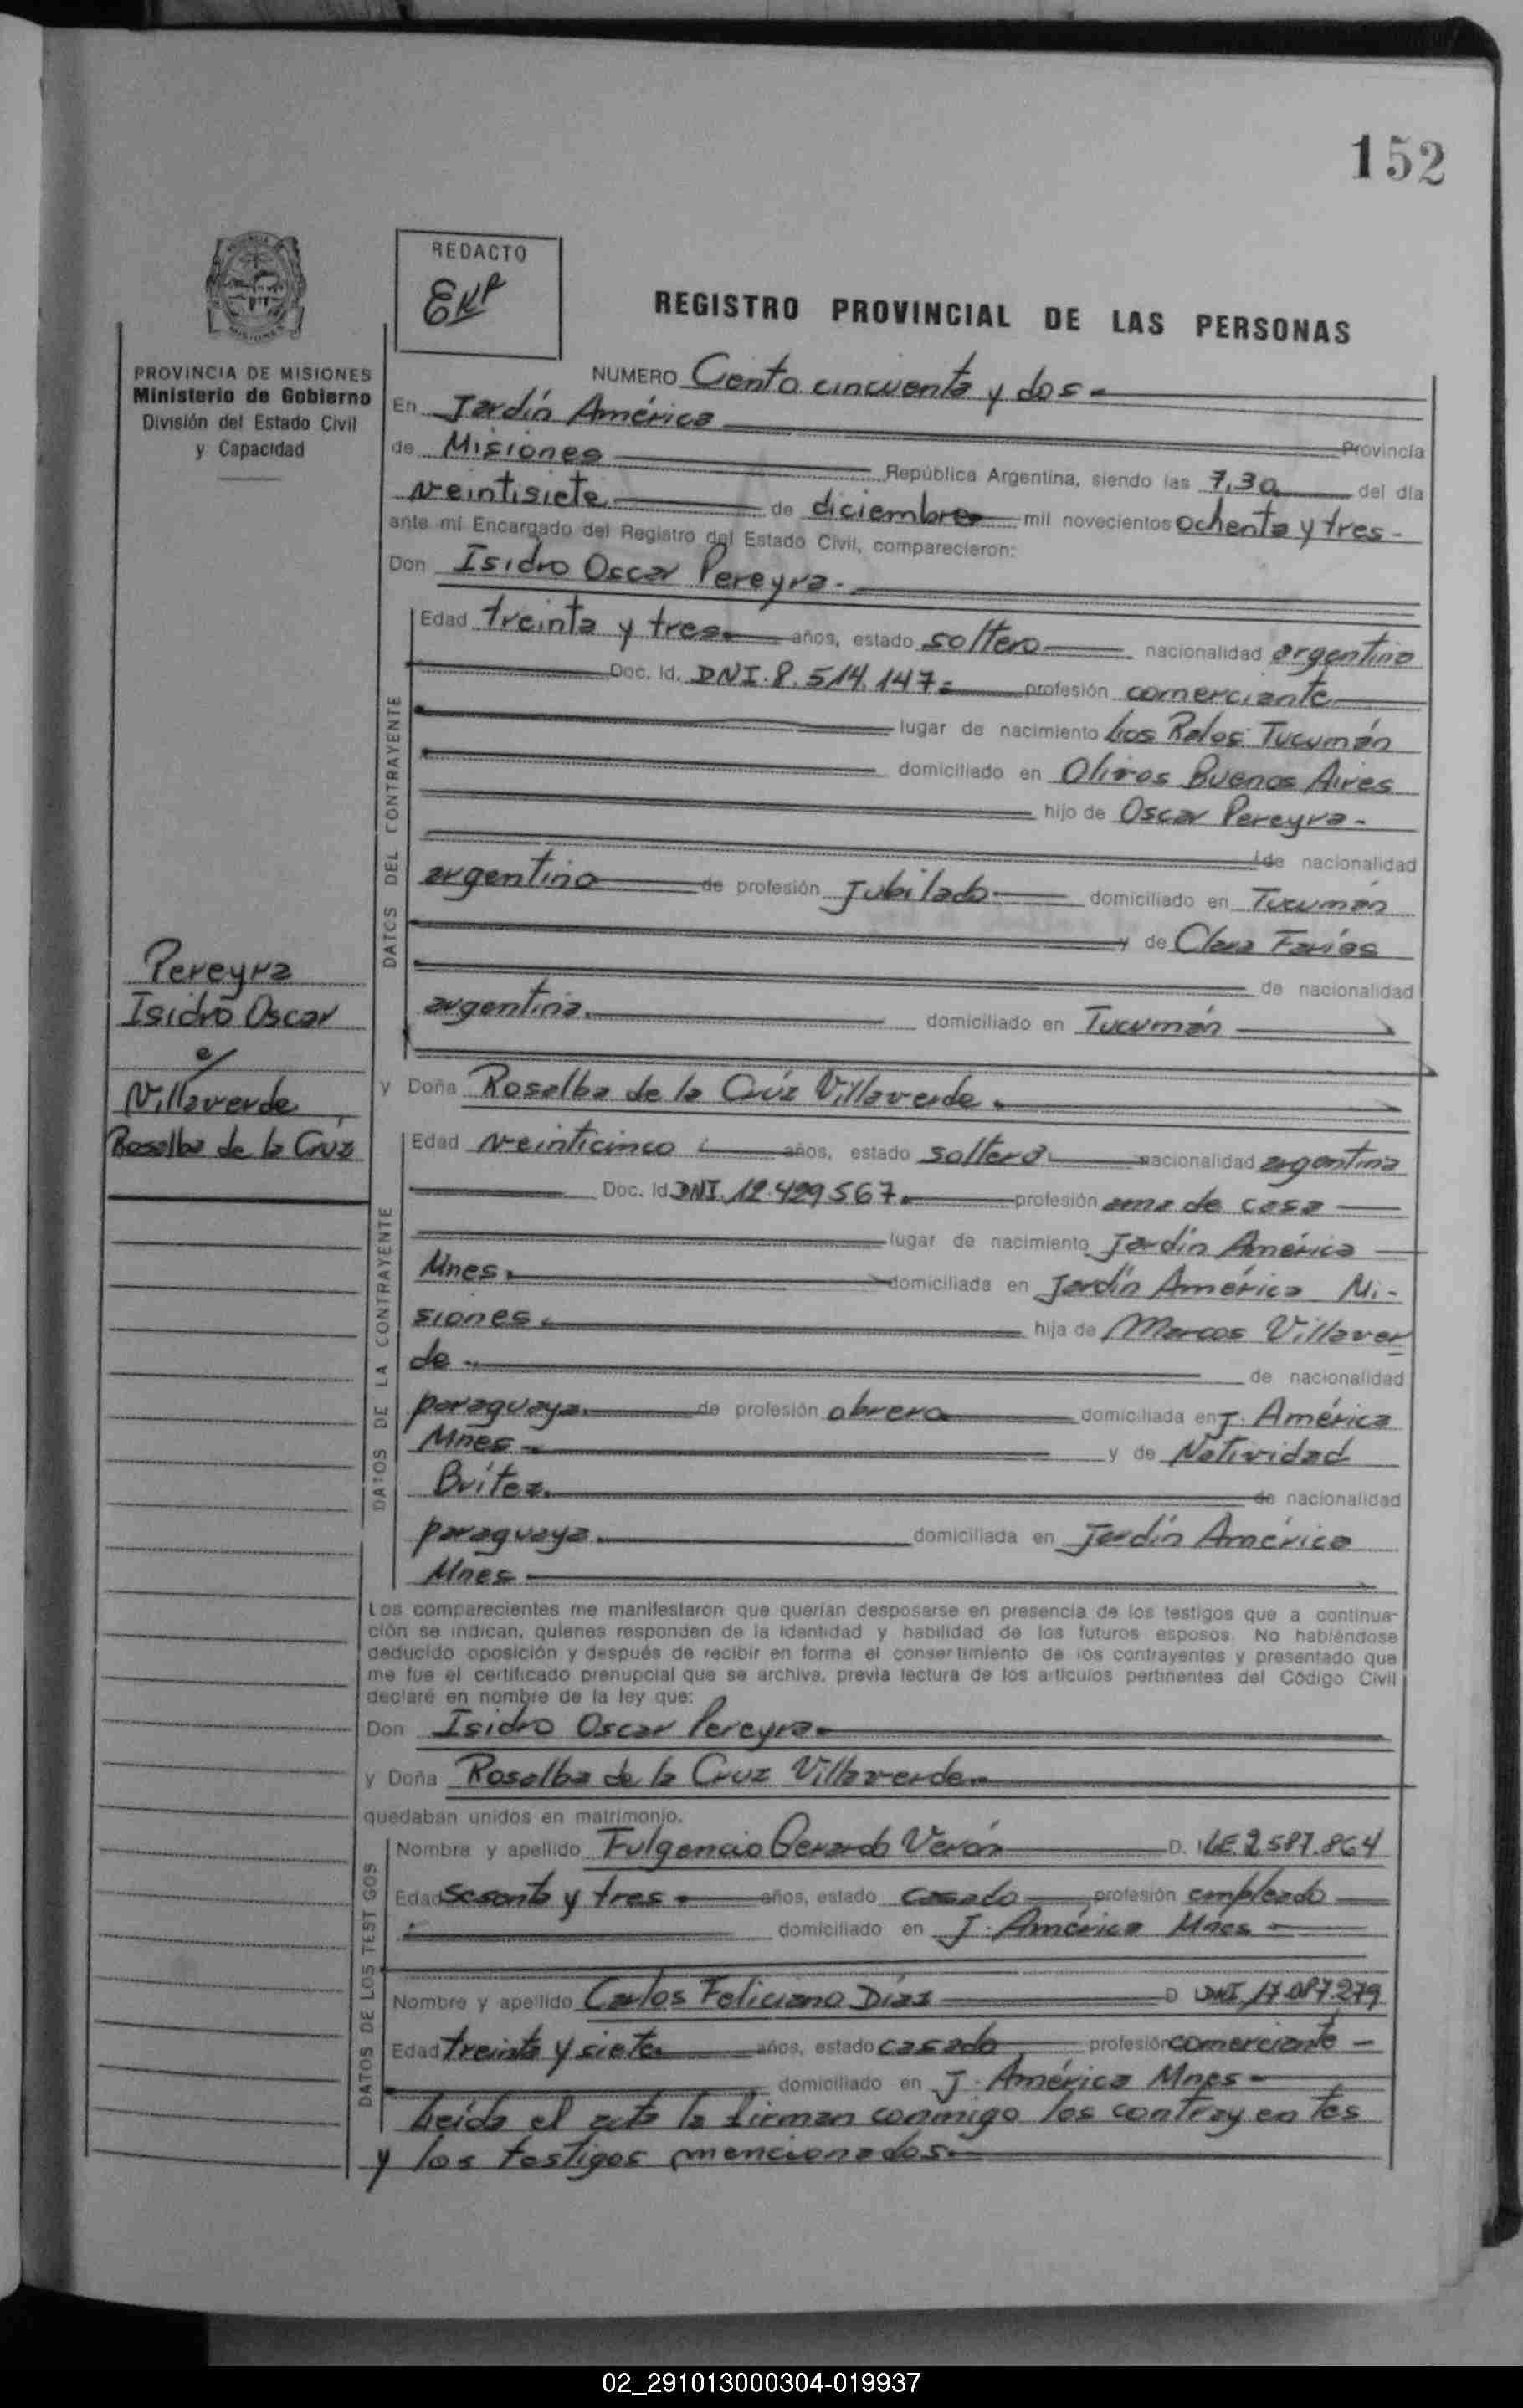 152
REDACTO
REGISTRO PROVINCIAL DE LAS PERSONAS
PROVINCIA DE MISIONES
Ministerio de Gobierno
División del Estado Civil
y Capacidad
NUMERO Ciento cincuenta y dos
En Jardín América
Provincia
de Misiones República Argentina, siendo las 7,30 del día
veintisiete de diciembre mil novecientos ochenta y tres
ante mí Encargado del Registro del Estado Civil, comparecieron:
Don Isidro Oscar Pereyra
DATOS DEL CONTRAYENTE
Edad treinta y tres años, estado soltero nacionalidad argentino
Doc. Id. DNI. 8.514.147 profesión comerciante
lugar de nacimiento Los Ralos Tucumán
domiciliado en Olivos Buenos Aires
hijo de Oscar Pereyra
de nacionalidad
argentino de profesión Jubilado domiciliado en Tucumán
y de Clara Farías
de nacionalidad
argentina. domiciliado en Tucumán
Pereyra
Isidro Oscar
c/
Villaverde
Rosalba de la Cruz
y Doña Rosalba de la Cruz Villaverde
DATOS DE LA CONTRAYENTE
Edad veinticinco años, estado soltera nacionalidad argentina
Doc. Id. DNI. 12.429567 profesión ama de casa
lugar de nacimiento Jardín América
Mnes. domiciliada en Jardín América Mi-
siones. hija de Marcos Villaver
de de nacionalidad
paraguaya de profesión obrero domiciliada en J. América
Mnes y de Natividad
Britez. de nacionalidad
paraguaya. domiciliada en Jardín América
Mnes
Los comparecientes me manifestaron que querían desposarse en presencia de los testigos que a continua-
ción se indican, quienes responden de la identidad y habilidad de los futuros esposos. No habiéndose
deducido oposición y después de recibir en forma el consertimiento de los contrayentes y presentado que
me fue el certificado prenupcial que se archiva, previa lectura de los artículos pertinentes del Código Civil
declaré en nombre de la ley que:
Don Isidro Oscar Pereyra
y Doña Rosalba de la Cruz Villaverde
quedaban unidos en matrimonio.
DATOS DE LOS TESTIGOS
Nombre y apellido Fulgencio Gerardo Verón D. I LE 2.587.864
Edad Sesenta y tres años, estado casado profesión empleado
domiciliado en J. América Mnes
Nombre y apellido Carlos Feliciano Díaz D DNI 17.087.279
Edad treinta y siete años, estado casado profesión comerciante
domiciliado en J. América Mnes
Leída el acta la firman conmigo los contrayentes
y los testigos mencionados.
02_291013000304-019937